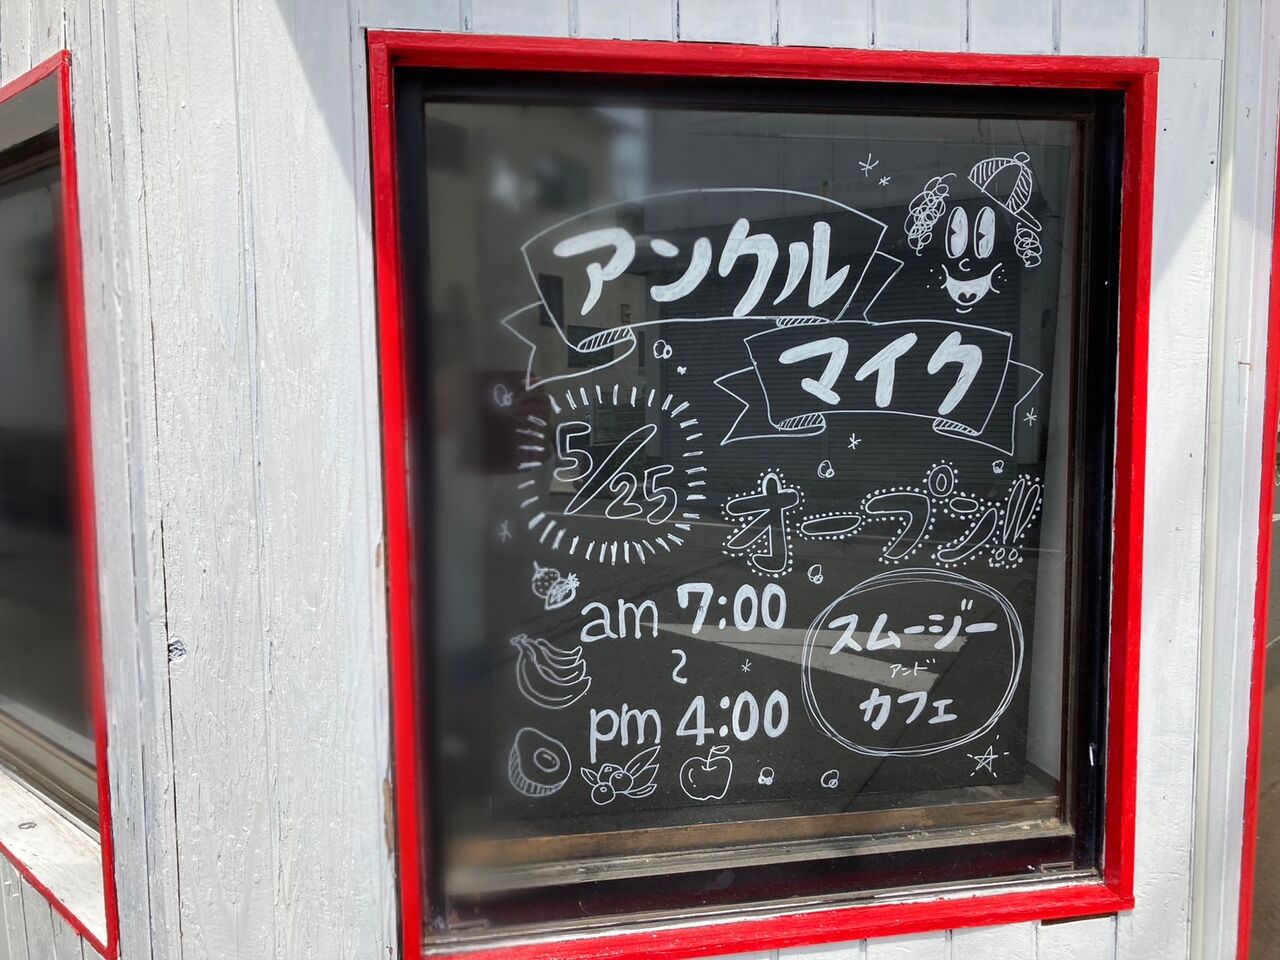 アンクル
マイク
5/25
オープン!!
am 7:00
〜
pm 4:00
スムージー
アンド
カフェ